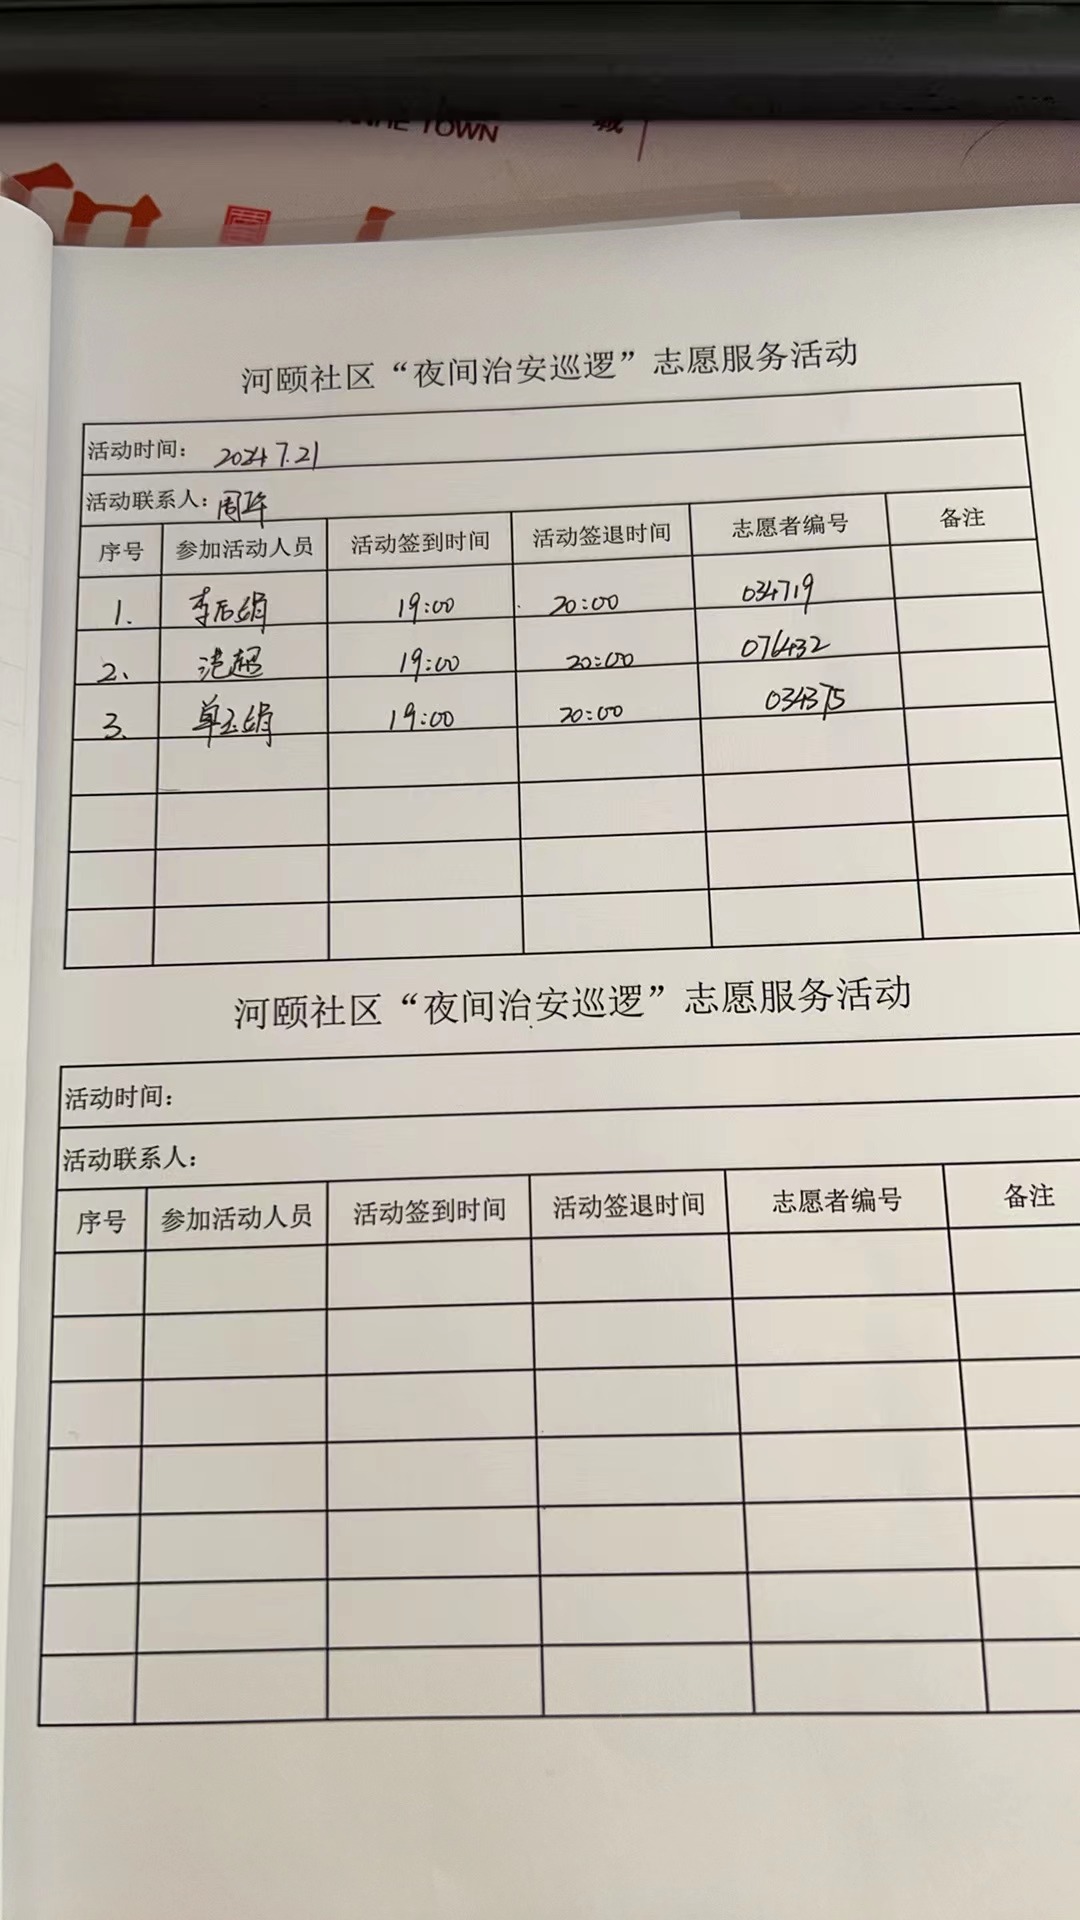 NHE TOWN
城
河颐社区“夜间治安巡逻”志愿服务活动
活动时间： 2024 7.21
活动联系人：周
序号 参加活动人员 活动签到时间 活动签退时间 志愿者编号 备注
1. 李后娟 19:00 20:00 034719
2、 范超 19:00 20:00 076432
3、 单玉娟 19:00 20:00 034375
河颐社区“夜间治安巡逻”志愿服务活动
活动时间：
活动联系人：
序号 参加活动人员 活动签到时间 活动签退时间 志愿者编号 备注